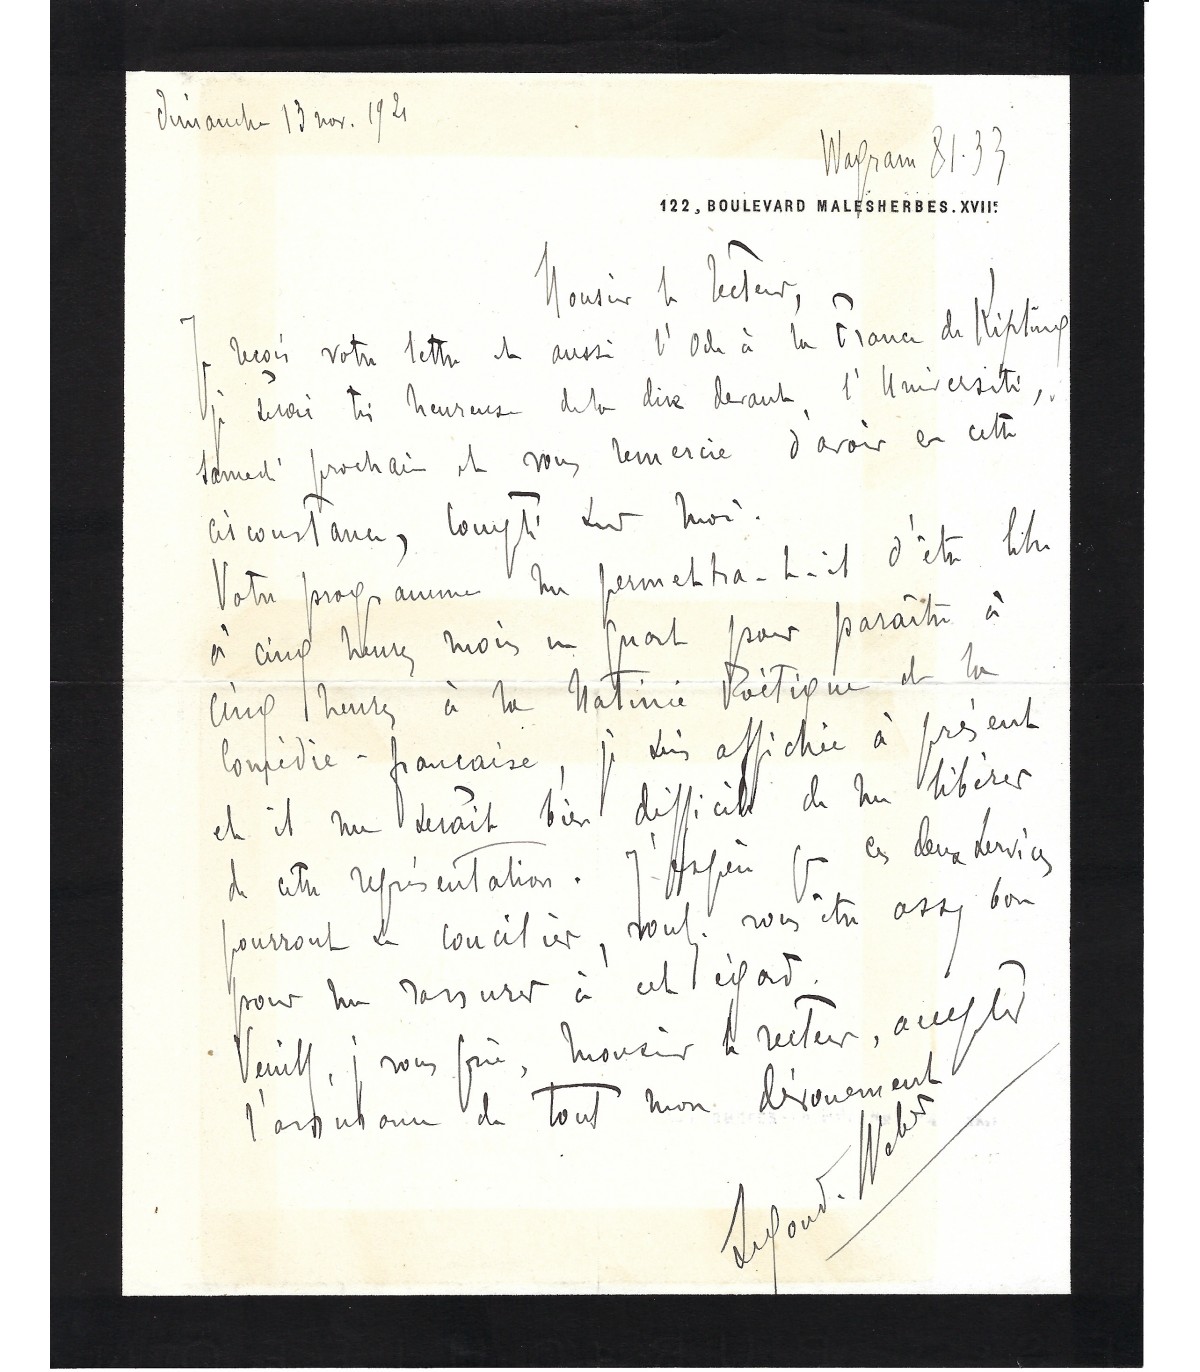 Dimanche 13 nov. 1921
Wagram 81.33
122, BOULEVARD MALESHERBES. XVIIe
Monsieur le Recteur,
Je reçois votre lettre et aussi l'Ode à la France de Kipling
je serai très heureuse de la dire devant l'Université,
samedi prochain et vous remercie d'avoir en cette
circonstance, compté sur moi.
Votre programme me permettra-t-il d'être libre
à cinq heures moins un quart pour paraître à
cinq heures à la Matinée Poétique de la
Comédie-française, je suis affichée à présent
et il me serait bien difficile de me libérer
de cette représentation. J'espère que ces deux services
pourront se concilier, voulez-vous être assez bon
pour me rassurer à cet égard.
Veuillez, je vous prie, Monsieur le recteur, accepter
l'assurance de tout mon dévouement
Segond-Weber